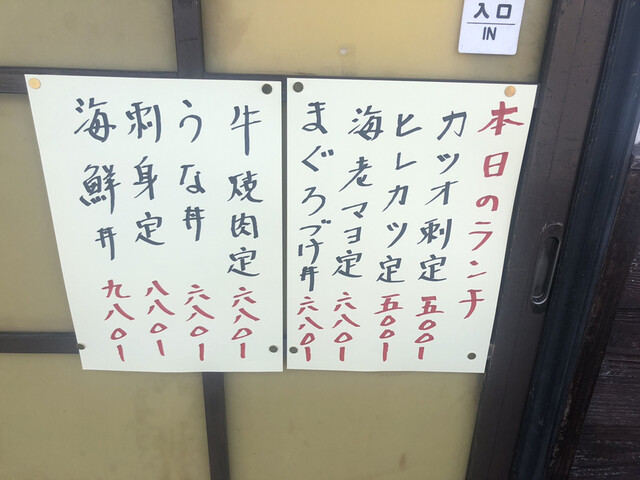 入口
IN
本日のランチ
カツオ刺定 五〇〇ー
ヒレカツ定 五〇〇ー
海老マヨ定 六八〇ー
まぐろづけ丼 六八〇ー
牛焼肉定 六八〇ー
うな丼 六八〇ー
刺身定 八八〇ー
海鮮丼 九八〇ー